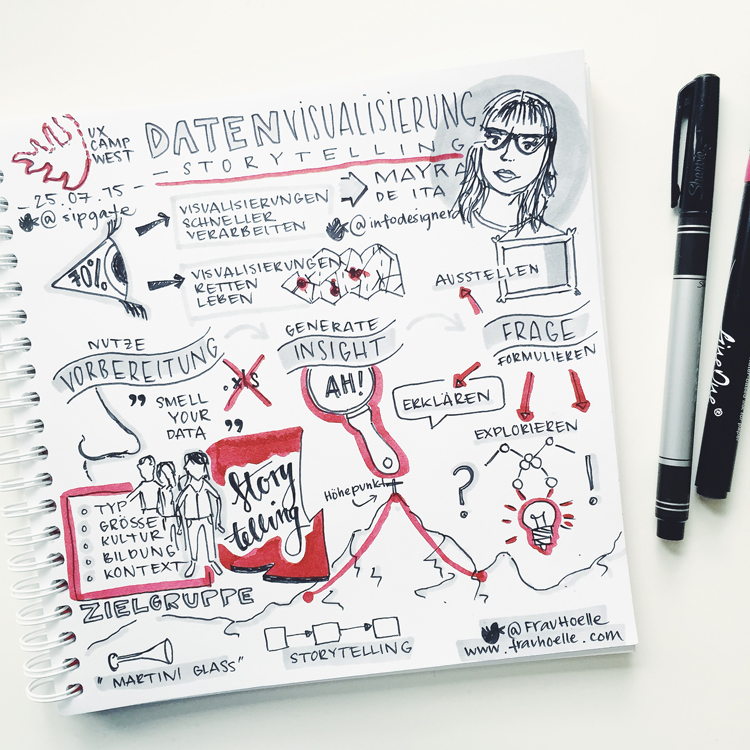 UX
CAMP
WEST
DATENVISUALISIERUNG
- STORYTELLING
- 25.07.15 -
@sipgate
MAYRA
DE ITA
@infodesignerd
VISUALISIERUNGEN
SCHNELLER
VERARBEITEN
70%
VISUALISIERUNGEN
RETTEN
LEBEN
AUSSTELLEN
NUTZE
VORBEREITUNG
GENERATE
INSIGHT
FRAGE
FORMULIEREN
.xls
AH!
ERKLÄREN
" SMELL
YOUR
DATA "
EXPLORIEREN
Story
telling
Höhepunkt
?
!
TYP
GRÖSSE
KULTUR
BILDUNG
KONTEXT
ZIELGRUPPE
"MARTINI GLASS"
STORYTELLING
@FRAUHOELLE
www.frauhoelle.com